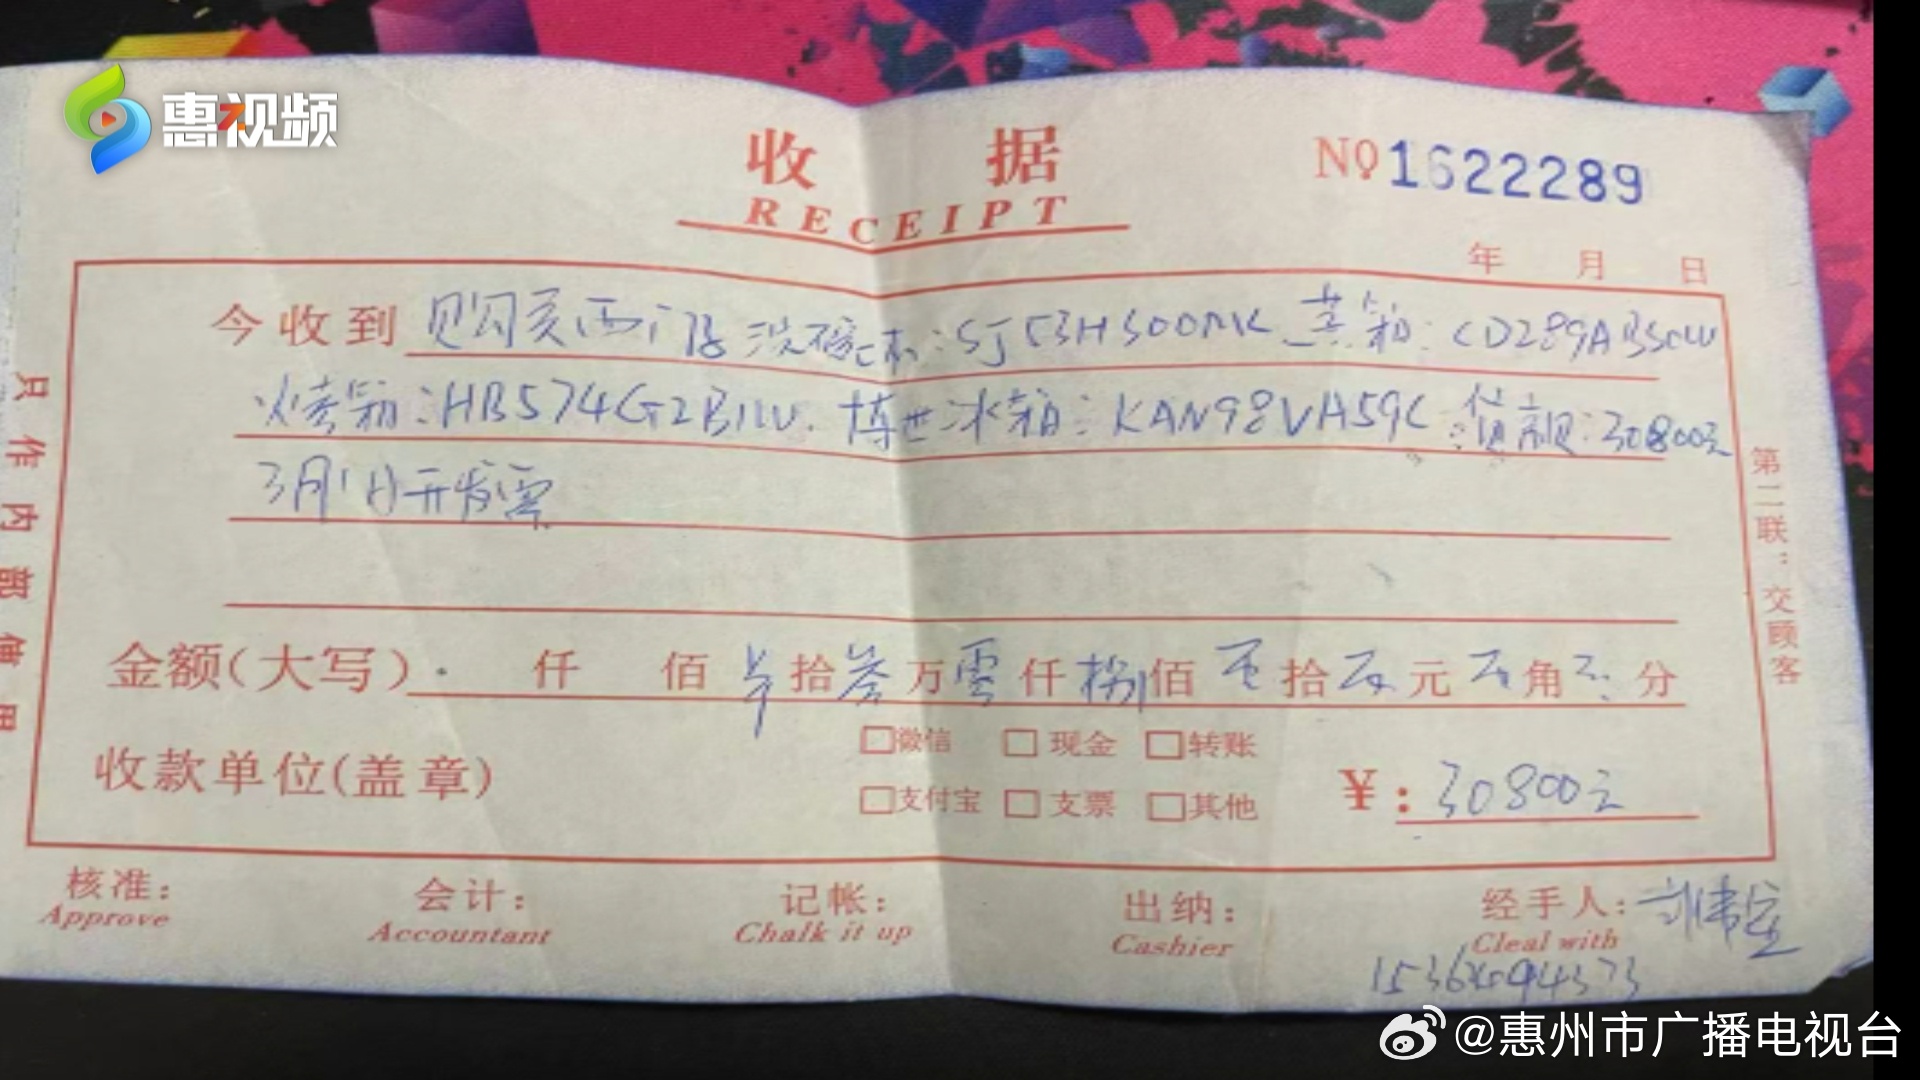 惠视频
收 据
RECEIPT
No 1622289
年 月 日
今收到 购买西门子洗碗机:SJ53H300MK 蒸箱:CD289ABS0W
烤箱:HB574G2B1W. 博世冰箱:KAN98VA59C 货款:30800元
3月1日开发票
金额(大写) 仟 佰 拾 叁 万 零 仟 捌 佰 零 拾 元 角 分
收款单位(盖章)
□微信 □现金 □转账
□支付宝 □支票 □其他
¥:30800元
核准: 会计: 记帐: 出纳: 经手人:
Approve Accountant Chalk it up Cashier Cleal with
只作内部使用
第二联:交顾客
@惠州市广播电视台